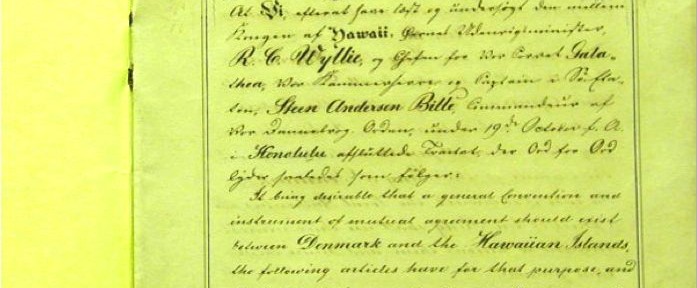 At Vi, efterat have læst og undersøgt den mellem
Kongen af Hawaii. Udenrigsminister,
R. C. Wyllie, og Chefen for Vor Corvet Gala-
thea, Vor Kammerherre og Captain i Sø-Eta-
ten, Steen Andersen Bille, Commandeur af
Vor Dannebrog. Orden, under 19de October f. A.
i Honolulu afsluttede Tractat, der Ord for Ord
lyder saaledes som følger:
It being desirable that a general Convention and
instrument of mutual agreement should exist
between Denmark and the Hawaiian Islands,
the following articles have for that purpose, and